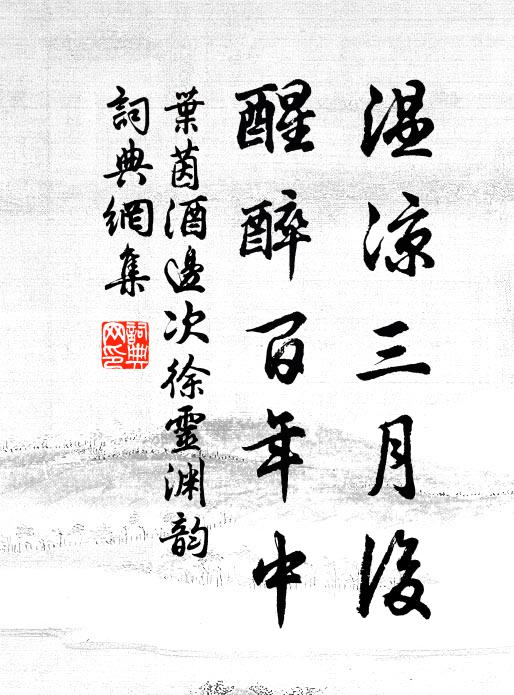 温凉三月後
醒醉百年中
葉茵酒邊次徐靈渊韵
詞典網集
詞典网印